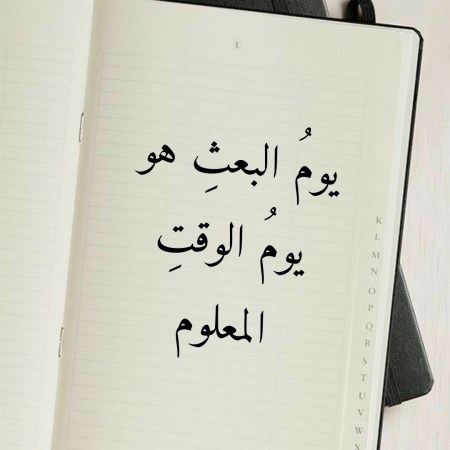 L
يومُ البعثِ هو
يومُ الوقتِ
المعلوم
K
L
M
N
O
P
Q
R
S
T
U
V
W
X